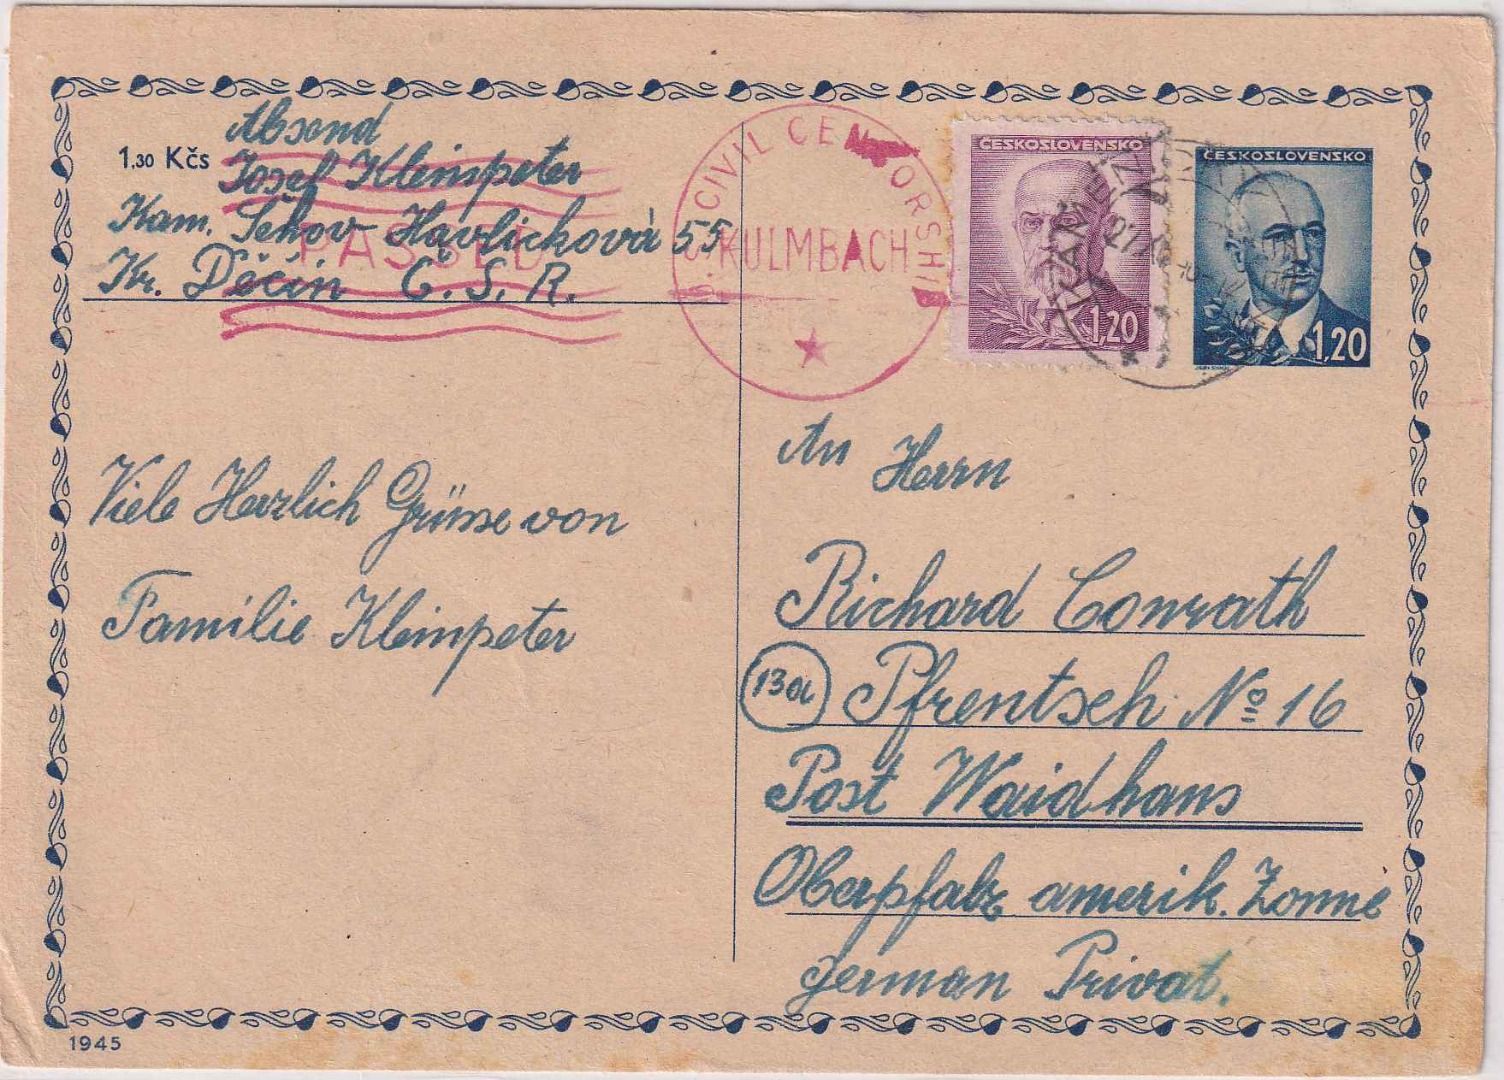 Absend
1.30 Kčs
Josef Kleinpeter
Kam. Šenov Havlicková 55
Kr. Děčín Č. S. R.
PASSED
U.S. CIVIL CENSORSHIP
KULMBACH
ČESKOSLOVENSKO
1,20
ČESKOSLOVENSKO
1,20
Viele Herzlich Grüsse von
Familie Kleinpeter
An Herrn
Richard Conrath
13a Pfrentsch No 16
Post Waidhaus
Oberpfalz amerik. Zonne
german Privat.
1945